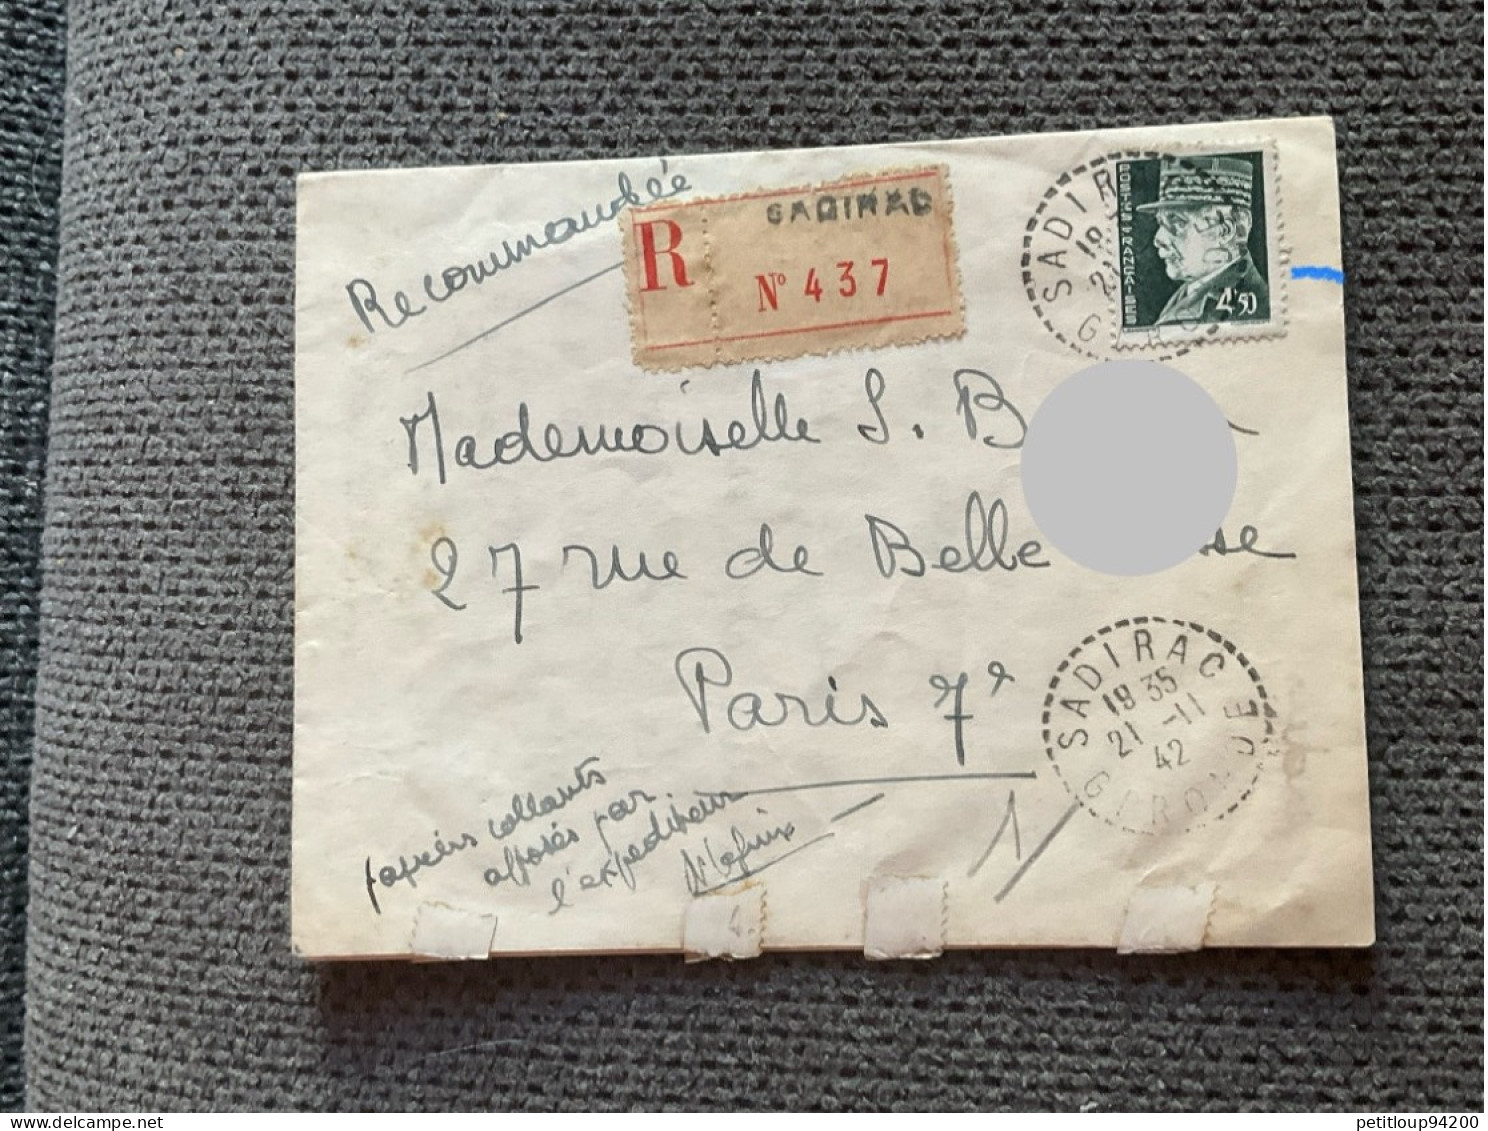 Recommandée
R
SADIRAC
Nº 437
SADIR
19
21
G
POSTES FRANCAISES
4F50
Mademoiselle S. B
27 rue de Belle sse
Paris 7e
SADIRAC
19 35
21 -11
42
GIRONDE
papiers collants
apposés par
l'expéditeur
1
4.
petitloup94200